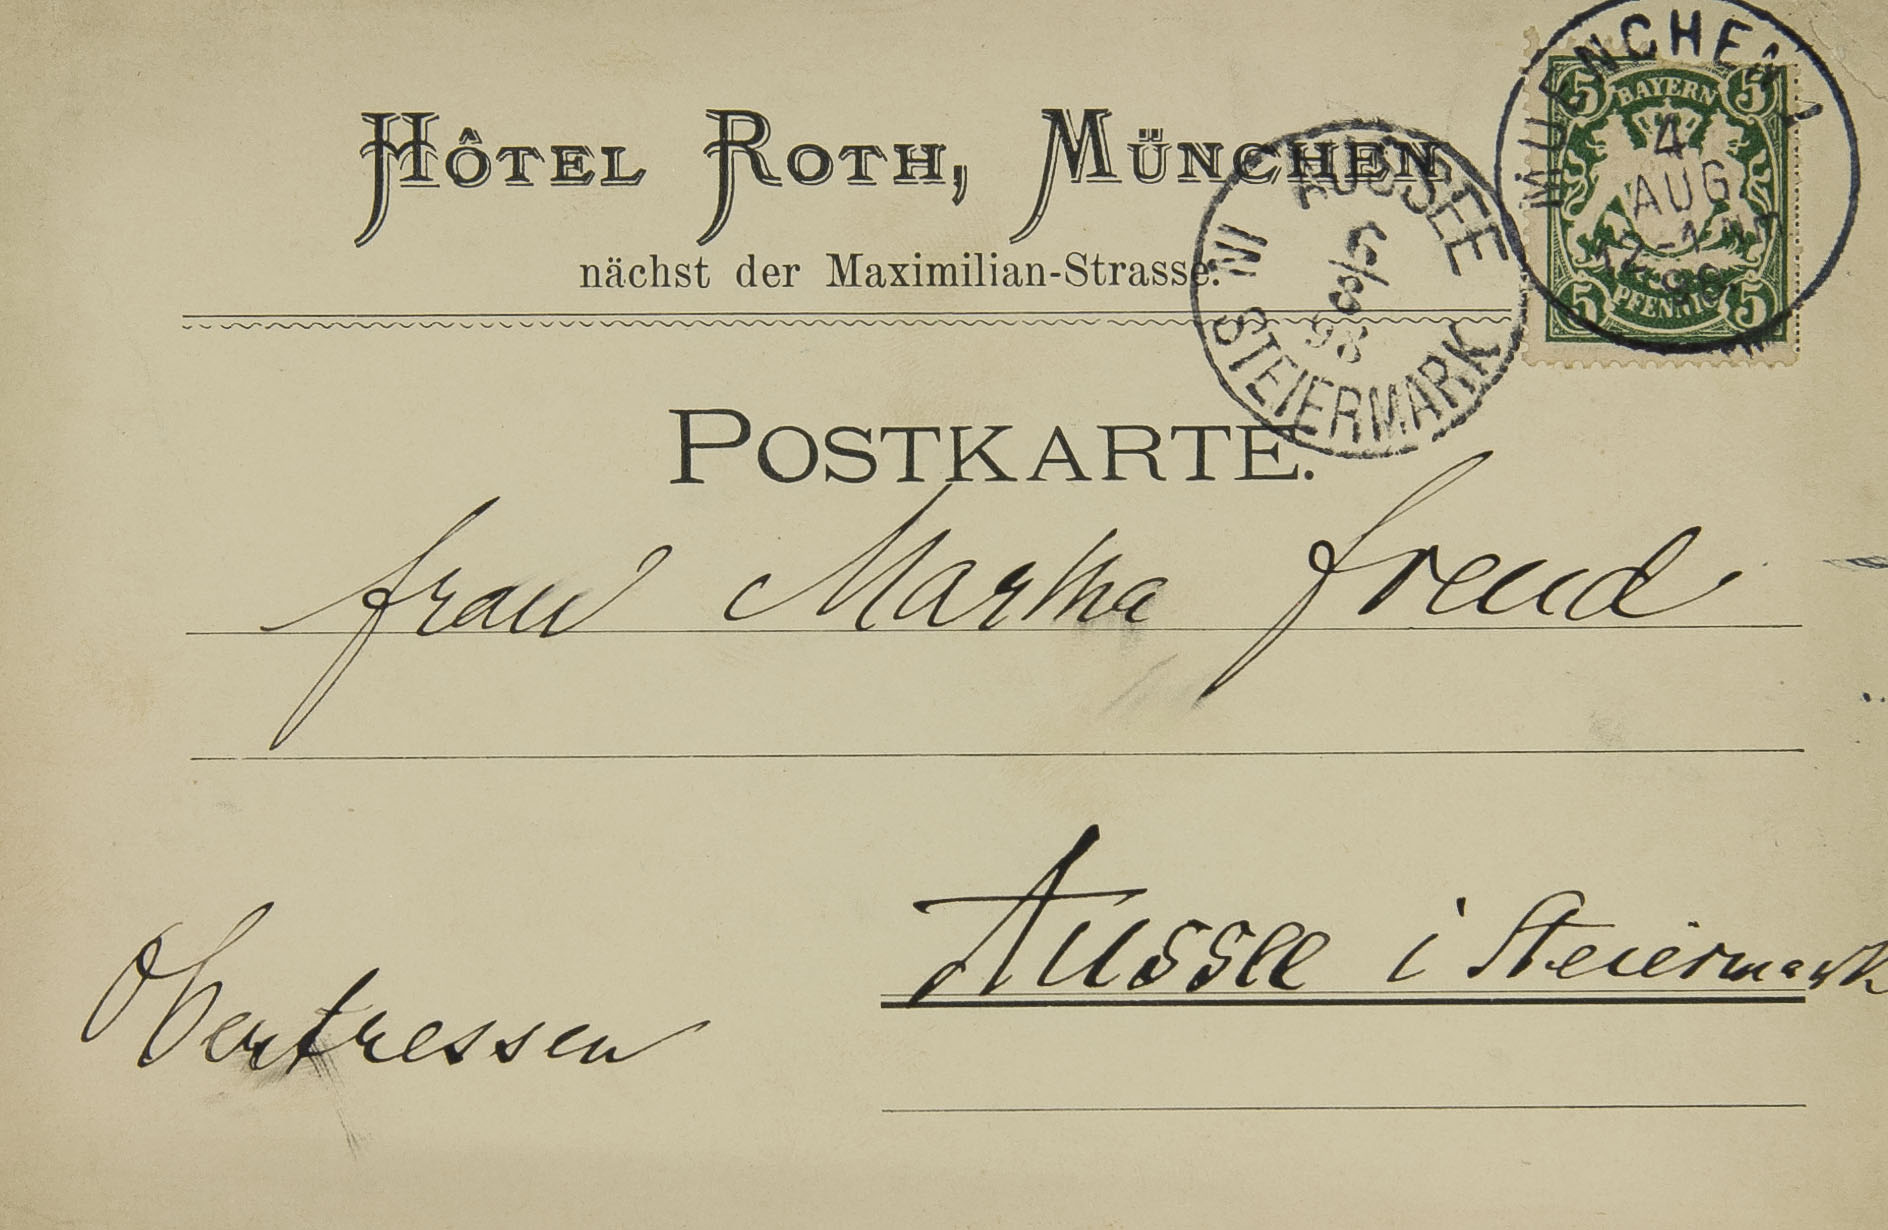 HÔTEL ROTH, MÜNCHEN,
nächst der Maximilian-Strasse.
MUENCHEN 1
4
AUG
98
BAYERN
5 5
PFENNIG
5 5
AUSSEE
5/8
98
IN STEIERMARK
POSTKARTE.
Frau Martha Freud
Aussee i Steiermark
Obertressen